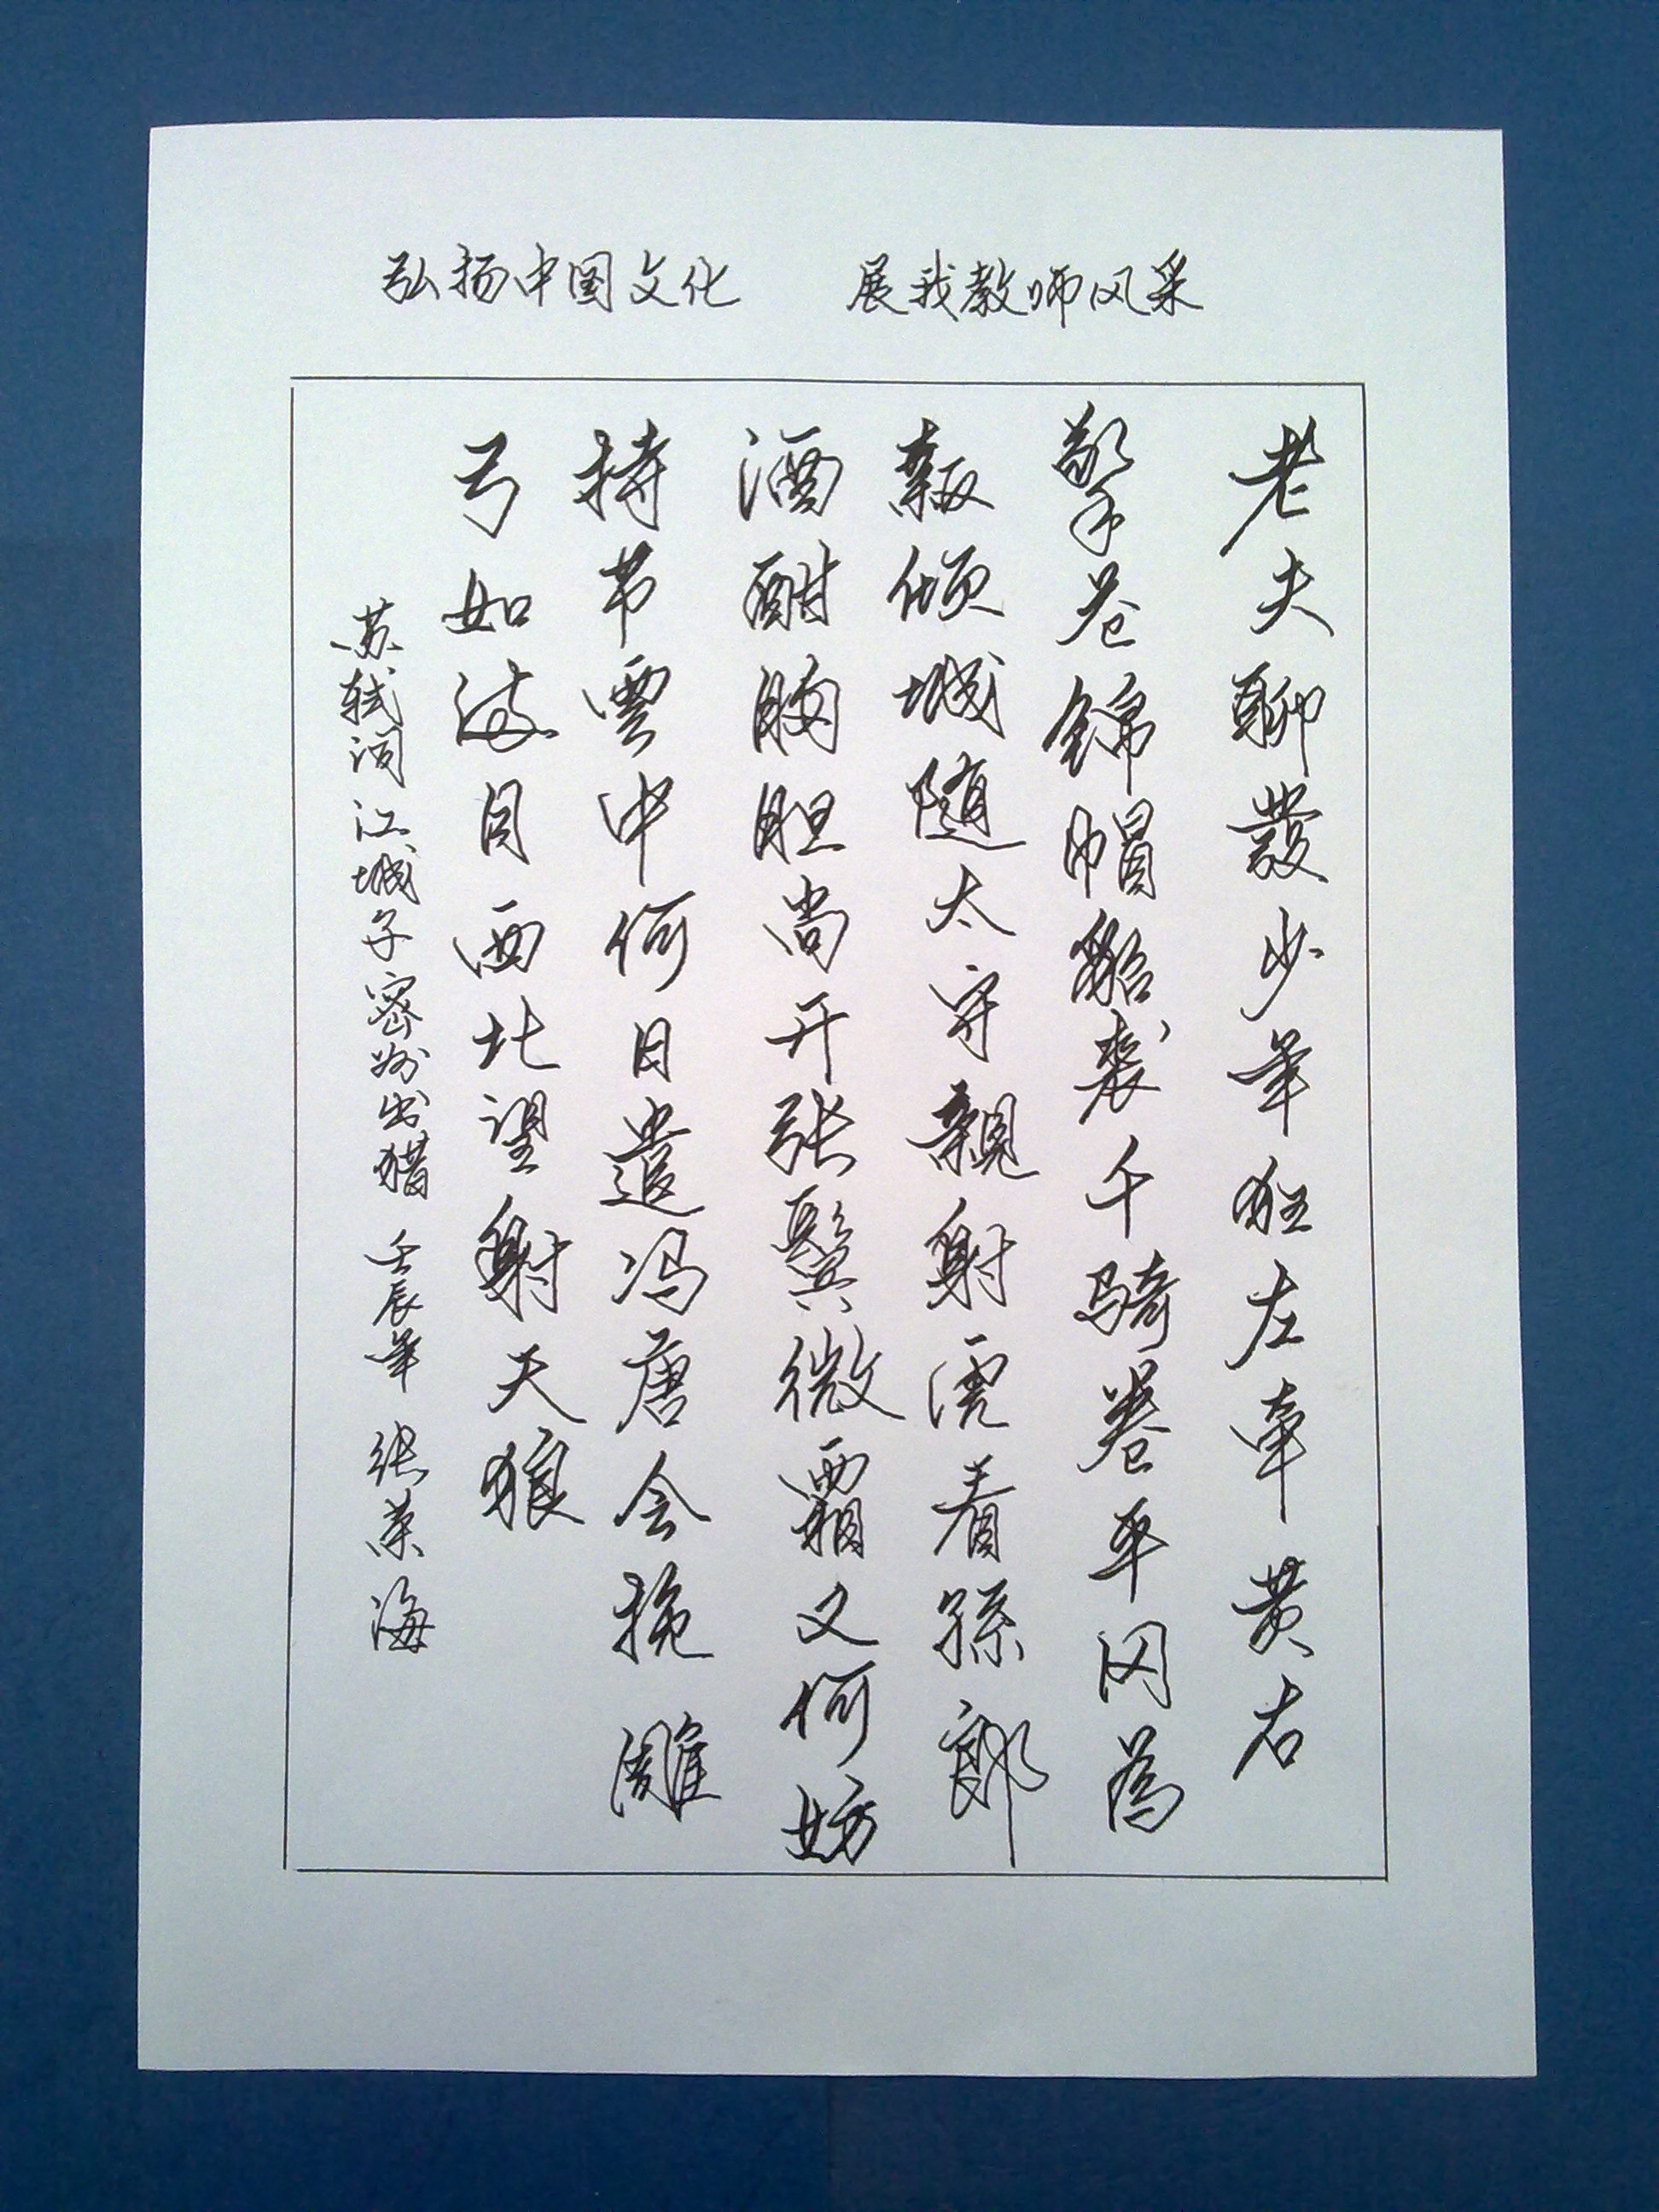 弘扬中国文化 展我教师风采
老夫聊發少年狂左牵黄右
擎苍锦帽貂裘千骑卷平冈为
報倾城随太守親射虎看孫郎
酒酣胸胆尚开张鬓微霜又何妨
持节雲中何日遣冯唐会挽雕
弓如满月西北望射天狼
苏轼词江城子密州出猎 壬辰年 张荣海